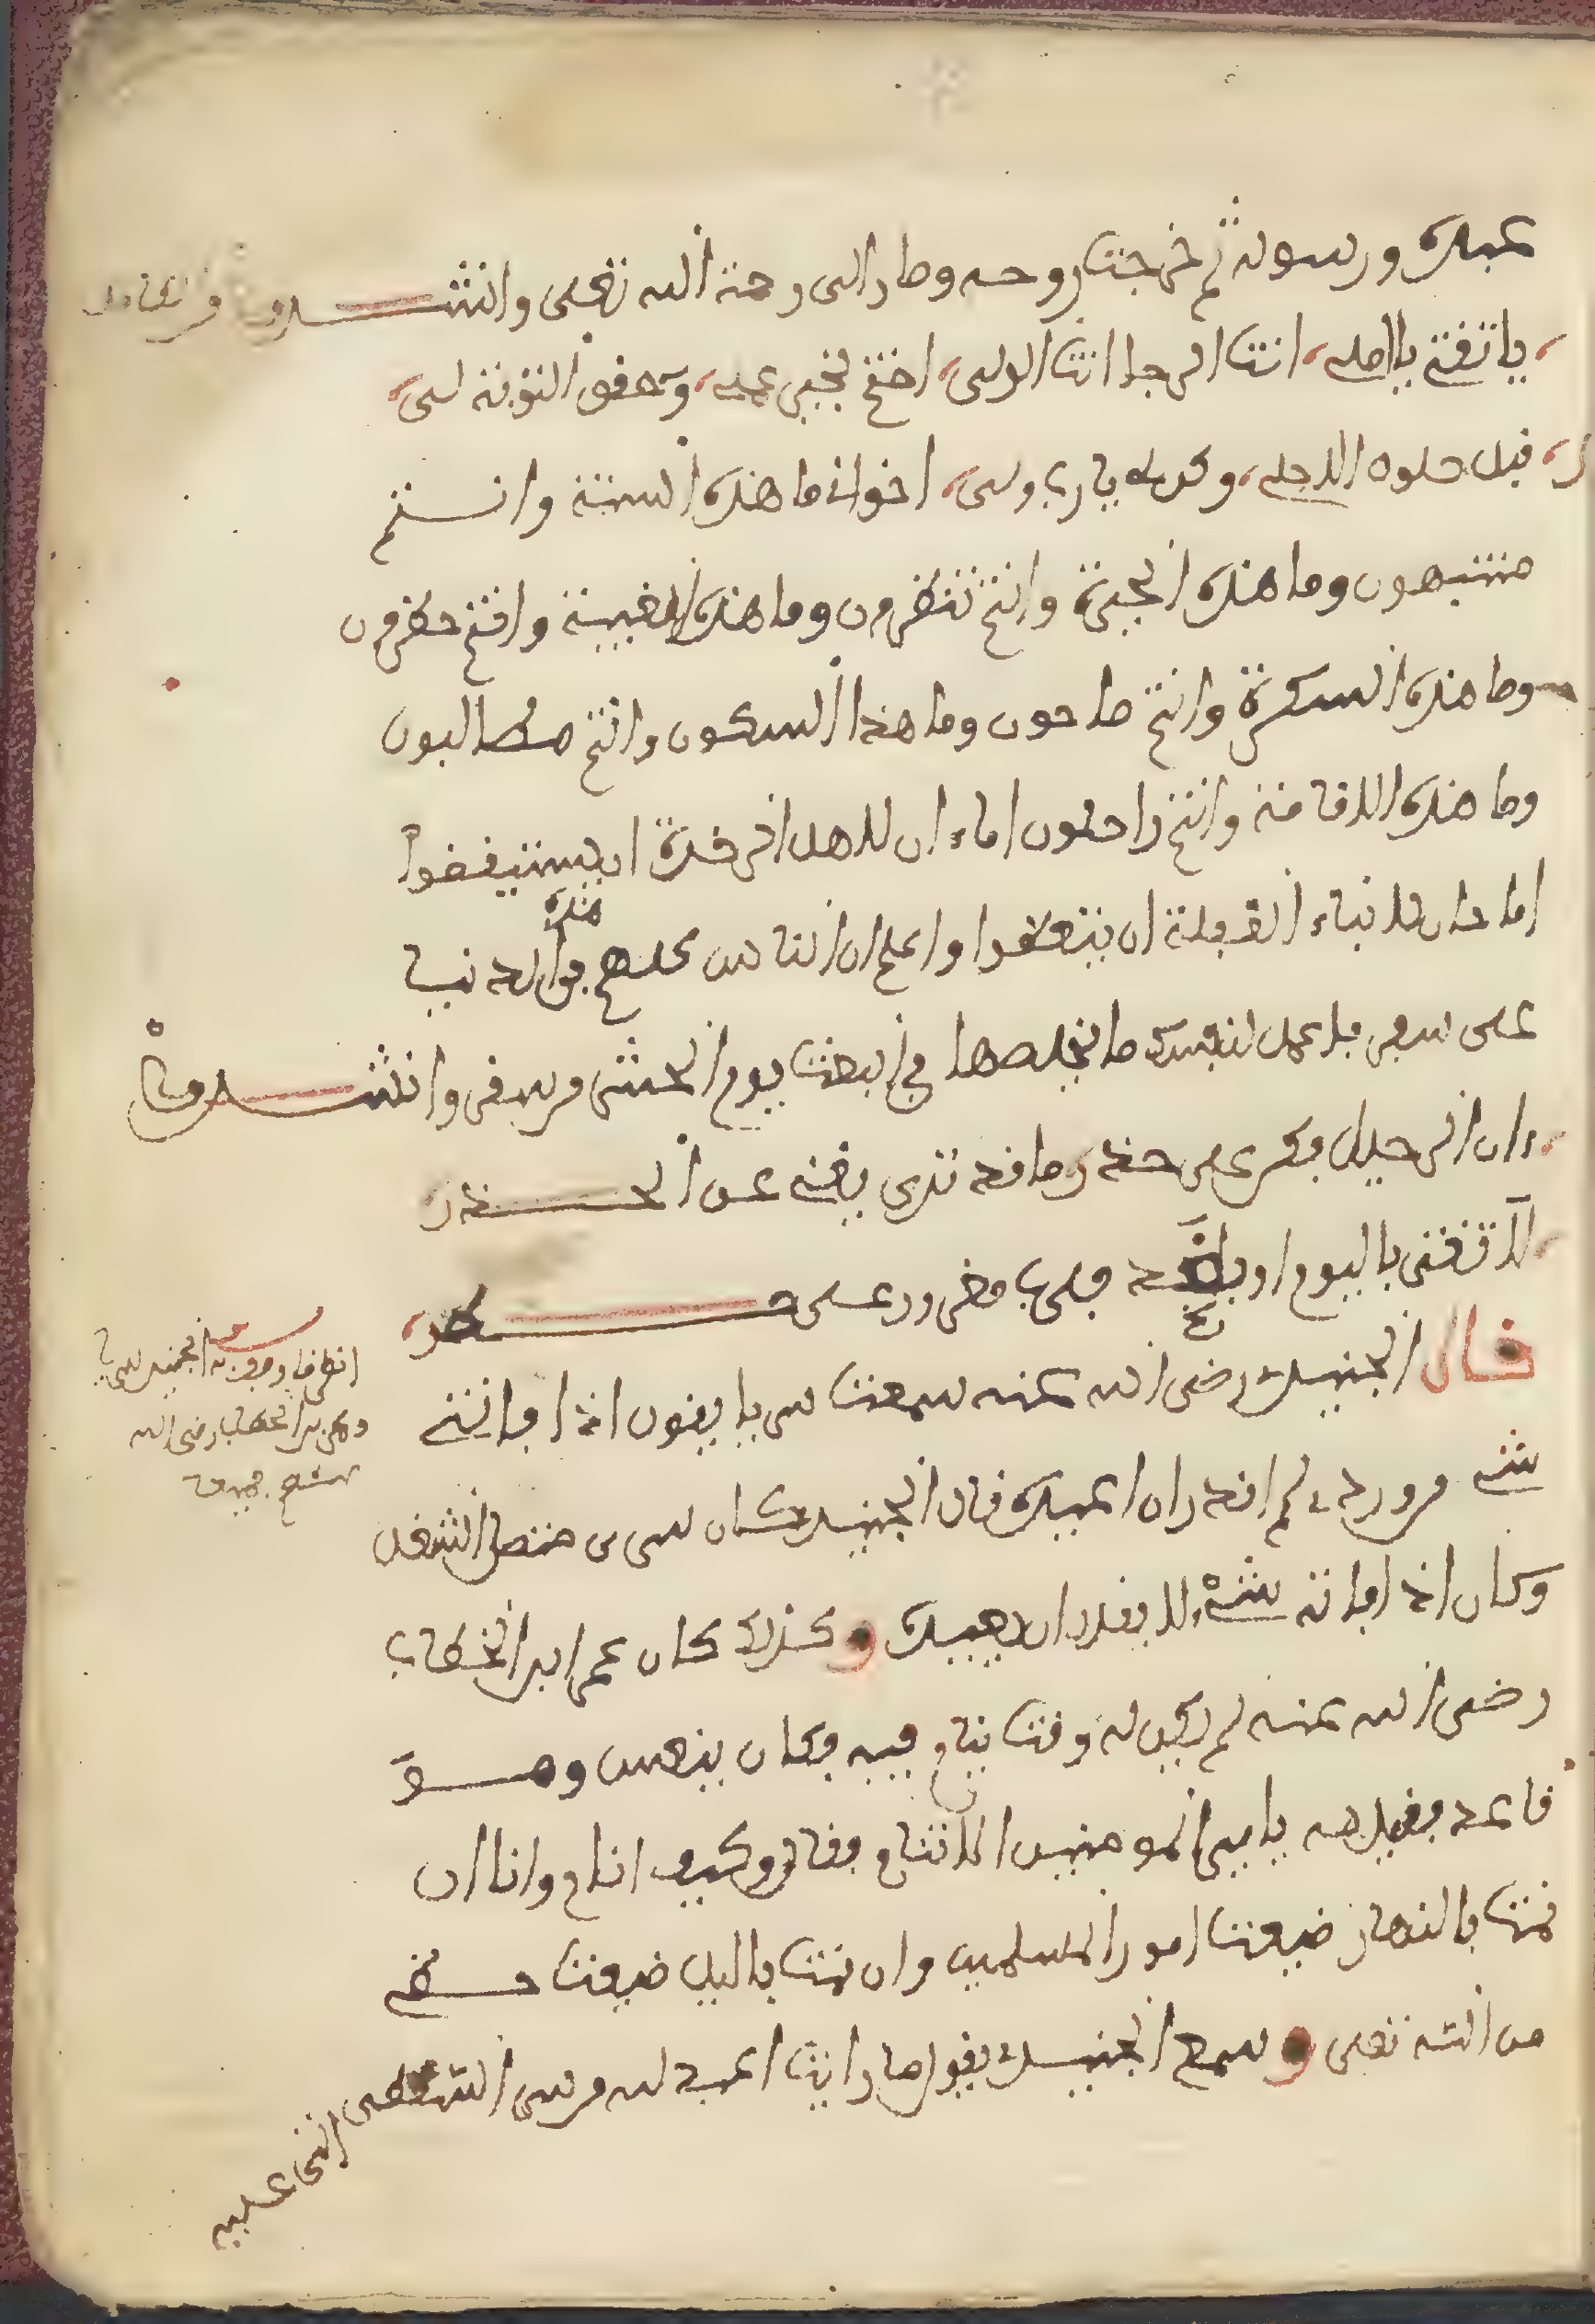 عبده ورسوله ثم خرجت روحه وصار الى رحمة الله تعلى وانشدوا
يا ثقتي يا املي، انت الرجا انت الولي، اختم بخير عملي، وحقق التوبة لي،
قبل حلول الاجل، وكن لي يا رب ولي، اخواني ما هذه السنة وانتم
منتبهون وما هذه الحيرة وانتم تنظرون وما هذه الغيبة وانتم حضرون
وما هذه السكرة وانتم صاحون وما هذا السكون وانتم مطالبون
وما هذه الاقامة وانتم راحلون اما ان لاهل الرقدة ان يستيقضوا
اما حان لابناء الغفلة ان يتعظوا واعلم ان الناس كلهم في هذه الدنيا
على سفر فاعمل لنفسك ما يخلصها في البعث يوم الحشر من سقر وانشدوا
ان الرحيل فكن على حذر ما قد ترى يغني عن الحذر
لا تغتر باليوم او بغد فلرب مغرور على خطر
قال الجنيد رضى الله عنه سمعت سريا يقول اذا فاتني
شيء من وردي لم اقدر ان اعيده قال الجنيد كان سري متصل الشغل
وكان اذا فاته شيء لا يقدر ان يعيده وكذلك كان عمر ابن الخطاب
رضى الله عنه لم يكن له وقت ينام فيه فكان ينعس وهو
قاعد فقيل له يا امير المومنين الا تنام فقال وكيف انام وانا ان
نمت بالنهار ضيعت امور المسلمين وان نمت باليل ضيعت حظي
من الله تعلى وسمع الجنيد يقول ما رايت اعبد لله من سري السقطي اتى عليه
انظر في الجنيد سريا
وعمر بن الخطاب رضى الله